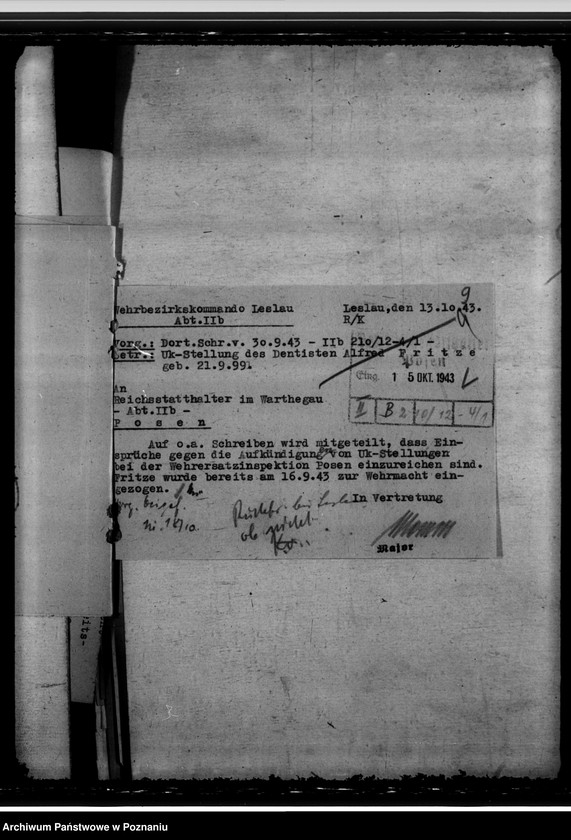 Wehrbezirkskommando Leslau
Abt.IIb
Leslau,den 13.10.43.
R/K
9
Vorg.: Dort.Schr.v. 30.9.43 - IIb 210/12-4/1 -
Betr.: Uk-Stellung des Dentisten Alfred F r i t z e
geb. 21.9.99.
Posen
Eing. 1 5 OKT. 1943
II B 2 10/12 - 4/1
An
Reichsstatthalter im Warthegau
- Abt.IIb -
P o s e n
Auf o.a. Schreiben wird mitgeteilt, dass Ein-
sprüche gegen die Aufkündigung von Uk-Stellungen
bei der Wehrersatzinspektion Posen einzureichen sind.
Fritze wurde bereits am 16.9.43 zur Wehrmacht ein-
gezogen.
In Vertretung
Major
Archiwum Państwowe w Poznaniu